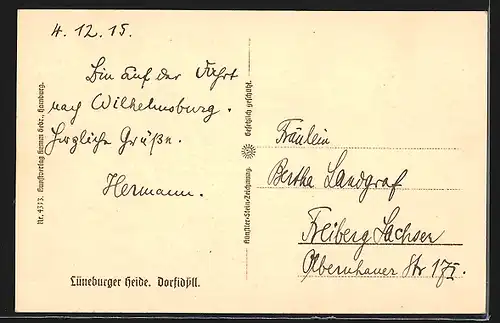 4. 12. 15.
Bin auf der Fahrt
nach Wilhelmsburg.
Herzliche Grüße.
Hermann.
Nr. 4333. Kunstverlag Hermes Gebr., Hamburg.
Lüneburger Heide. Dorfidyll.
Künstler-Stein-Zeichnung. Gesetzlich geschützt.
Fräulein
Bertha Landgraf
Freiberg Sachsen
Olbernhauer Str 17 I.